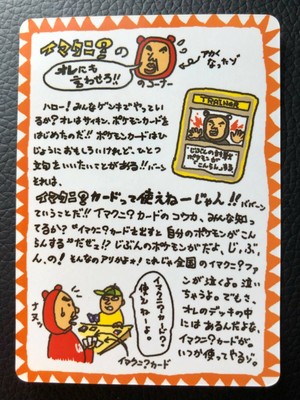 イマクニ?の
オレにも
言わせろ!!
のコーナー
アカく
なったゾ
ハロー!みんなゲンキでやってい
るか?オレはサイキン、ポケモンカードを
はじめたのだ!!ポケモンカードはひ
じょうにおもしろいけれど、ひとつ
文句をいいたいことがある!!バーン
それは、
イマクニ?カードって使えねーじゃん!!ババーン
ていうことだ!!イマクニ?カードのコウカ、みんな知っ
てるか?“イマクニ?カードを出すと自分のポケモンがこん
らんする”だぜェ!?じぶんのポケモンがだよ、じ、ぶ、
ん、の!そんなのアリかよォ!これじゃ全国のイマクニ?ファ
ンが泣くよ。泣い
ちゃうよ。でもさ、
オレのデッキの中
にはあるんだよな、
イマクニ?カードが。
いつか使ってやるゾ。
じぶんの
ポケモンが
こんらん
イマクニ?カード?
使えねーよ。
ナヌッ
イマクニ?カード